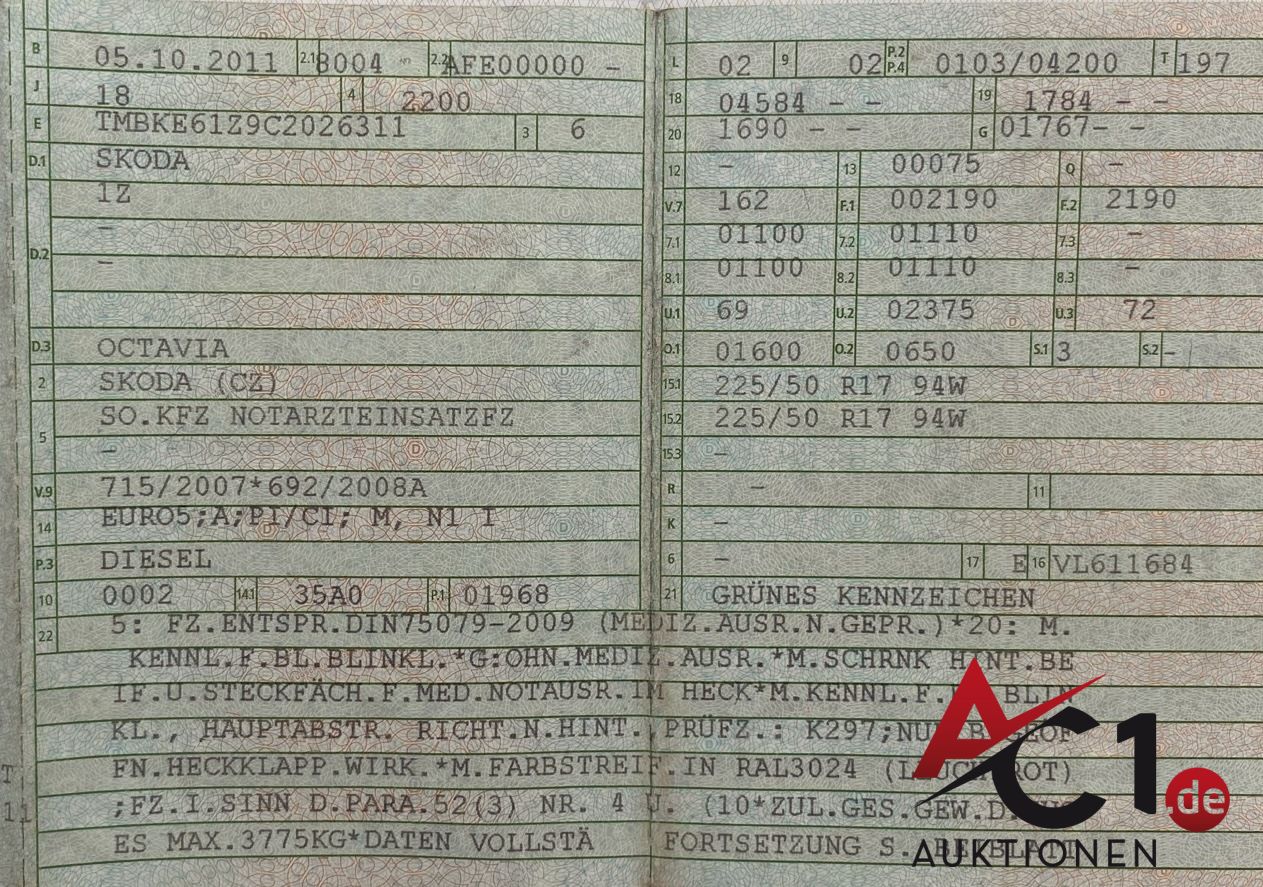 B 05.10.2011 2.1 8004 2.2 AFE00000 –
J 18 4 2200
E TMBKE61Z9C2026311 3 6
D.1 SKODA
1Z
–
D.2
–
D.3 OCTAVIA
2 SKODA (CZ)
SO.KFZ NOTARZTEINSATZFZ
5
–
V.9 715/2007*692/2008A
14 EURO5;A;PI/CI; M, N1 I
P.3 DIESEL
10 0002 14.1 35A0 P.1 01968
L 02 9 02 P.2 P.4 0103/04200 T 197
18 04584 – – 19 1784 – –
20 1690 – – G 01767– –
12 – 13 00075 Q –
V.7 162 F.1 002190 F.2 2190
7.1 01100 7.2 01110 7.3 –
8.1 01100 8.2 01110 8.3 –
U.1 69 U.2 02375 U.3 72
O.1 01600 O.2 0650 S.1 3 S.2 –
15.1 225/50 R17 94W
15.2 225/50 R17 94W
15.3 –
R – 11
K –
6 – 17 E 16 VL611684
21 GRÜNES KENNZEICHEN
22 5: FZ.ENTSPR.DIN75079-2009 (MEDIZ.AUSR.N.GEPR.)*20: M.
KENNL.F.BL.BLINKL.*G:OHN.MEDIZ.AUSR.*M.SCHRNK HINT.BE
IF.U.STECKFÄCH.F.MED.NOTAUSR.IM HECK*M.KENNL.F. BLIN
KL., HAUPTABSTR. RICHT.N.HINT., PRÜFZ.: K297;
FN.HECKKLAPP.WIRK.*M.FARBSTREIF.IN RAL3024
;FZ.I.SINN D.PARA.52(3) NR. 4 U. (10*ZUL.GES.GEW.D.
ES MAX.3775KG*DATEN VOLLSTÄ FORTSETZUNG S.
T
11
AC1.de
AUKTIONEN